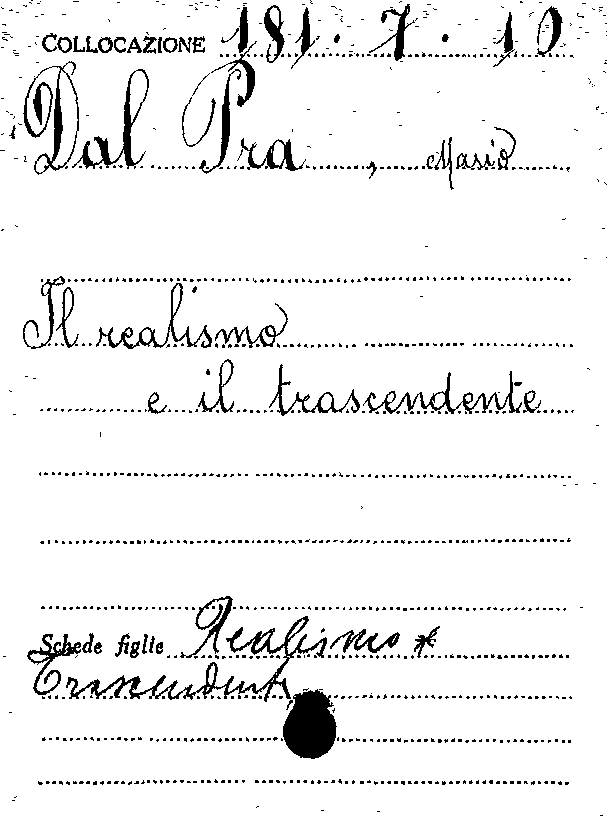 COLLOCAZIONE 181. 7. 10
Dal Pra, Mario
Il realismo
e il trascendente
Schede figlie Realismo *
Trascendente